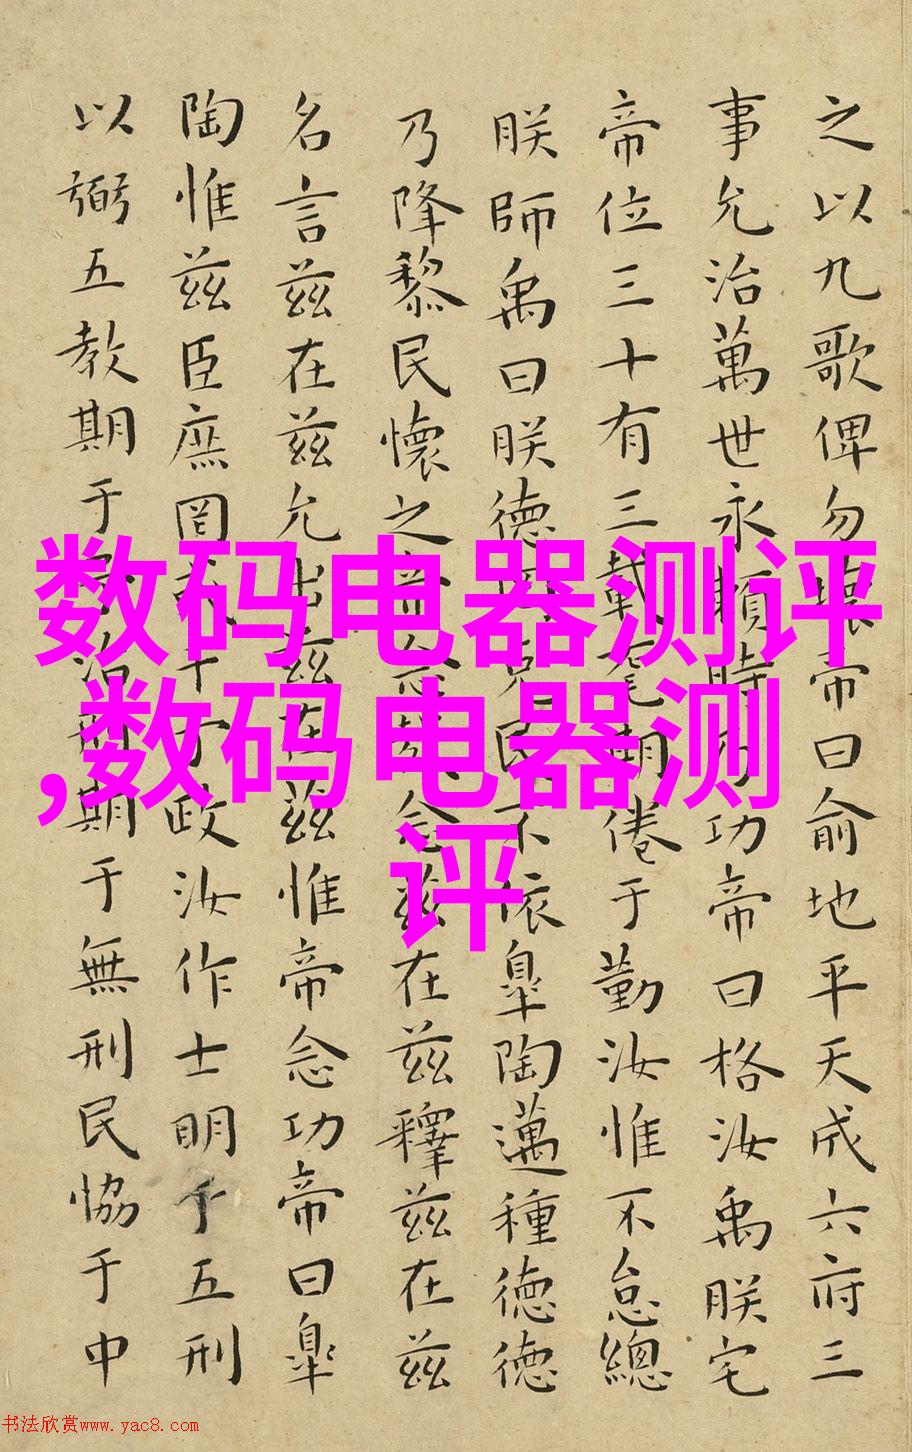 之以九歌俾勿壞帝曰俞地平天成六府三
事允治萬世永賴時乃功帝曰格汝禹朕宅
帝位三十有三載耄期倦于勤汝惟不怠總
朕師禹曰朕德罔克民不依皐陶邁種德德
乃降黎民懷之帝念哉念茲在茲釋茲在茲
名言茲在茲允出茲在茲惟帝念功帝曰皐
陶惟茲臣庶罔或干予政汝作士明于五刑
以弼五教期于予治刑期于無刑民協于中
数码电器测评
,数码电器测
评
书法欣赏www.yac8.com